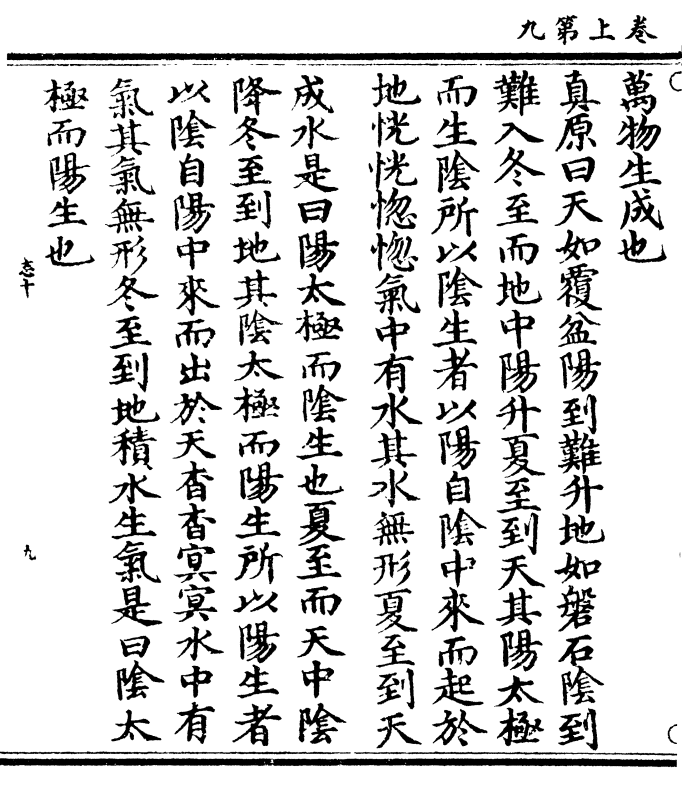 卷上第九
萬物生成也
真原曰天如覆盆陽到難升地如磐石陰到
難入冬至而地中陽升夏至到天其陽太極
而生陰所以陰生者以陽自陰中來而起於
地恍恍惚惚氣中有水其水無形夏至到天
成水是曰陽太極而陰生也夏至而天中陰
降冬至到地其陰太極而陽生所以陽生者
以陰自陽中來而出於天杳杳冥冥水中有
氣其氣無形冬至到地積水生氣是曰陰太
極而陽生也
志十
九